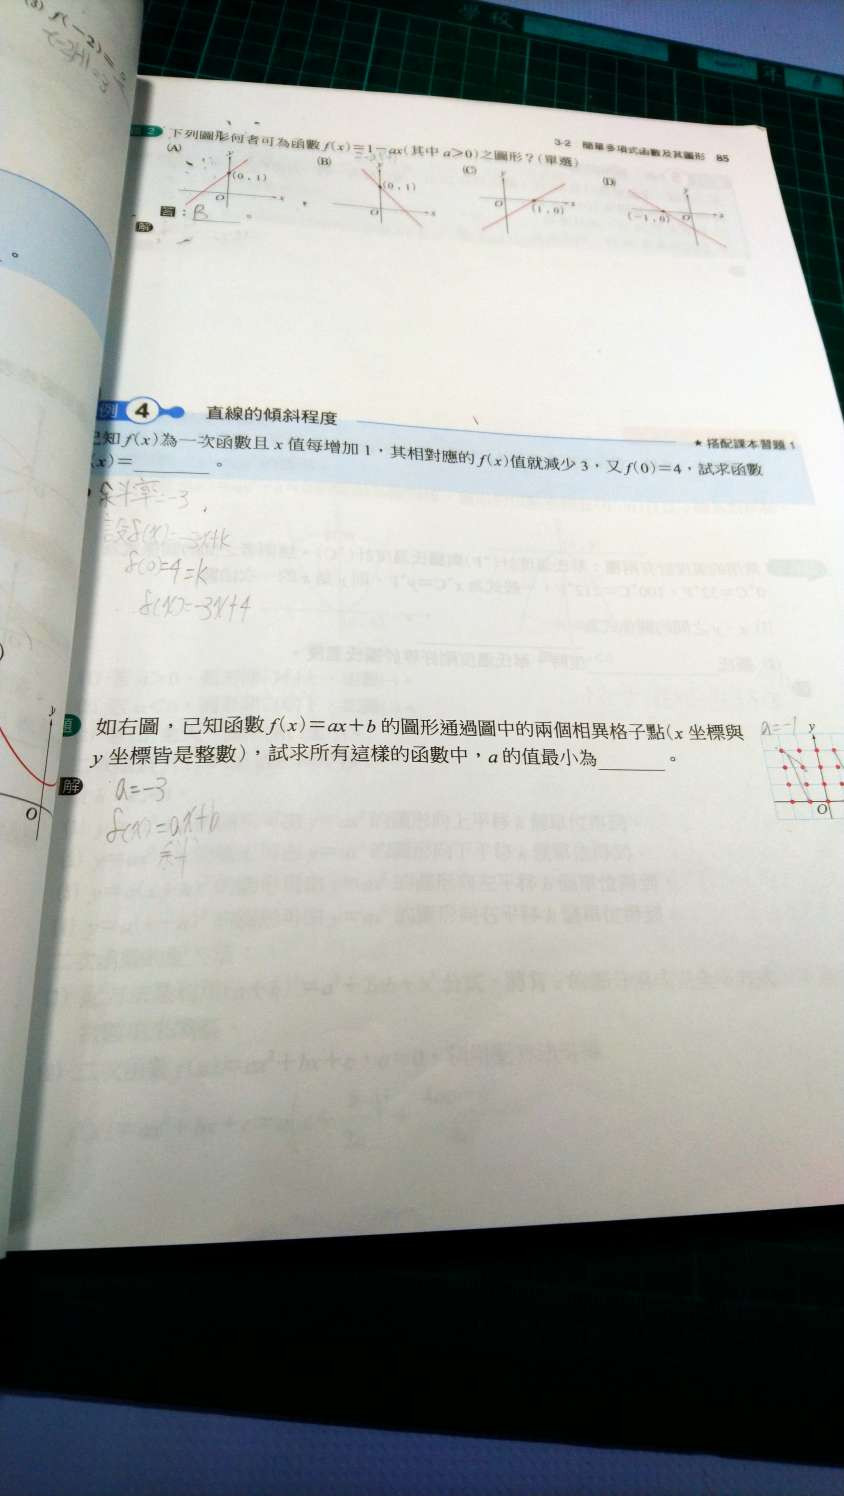 f(-2)=
3-2 簡單多項式函數及其圖形 85
2 下列圖形何者可為函數 f(x)=1-ax(其中 a>0)之圖形？(單選)
(A) y (0，1) O x
(B) y (0，1) O x
(C) y O (1，0) x
(D) y (-1，0) O x
答：B 。
解
例 4 直線的傾斜程度
★搭配課本習題 1
知 f(x) 為一次函數且 x 值每增加 1，其相對應的 f(x) 值就減少 3，又 f(0)=4，試求函數
(x)=______。
斜率=-3
設f(x)=-3x+k
f(0)=4=k
f(x)=-3x+4
題 如右圖，已知函數 f(x)=ax+b 的圖形通過圖中的兩個相異格子點(x 坐標與
y 坐標皆是整數)，試求所有這樣的函數中，a 的值最小為______。
a=-1
y
O
解 a=-3
f(x)=ax+b
y
O